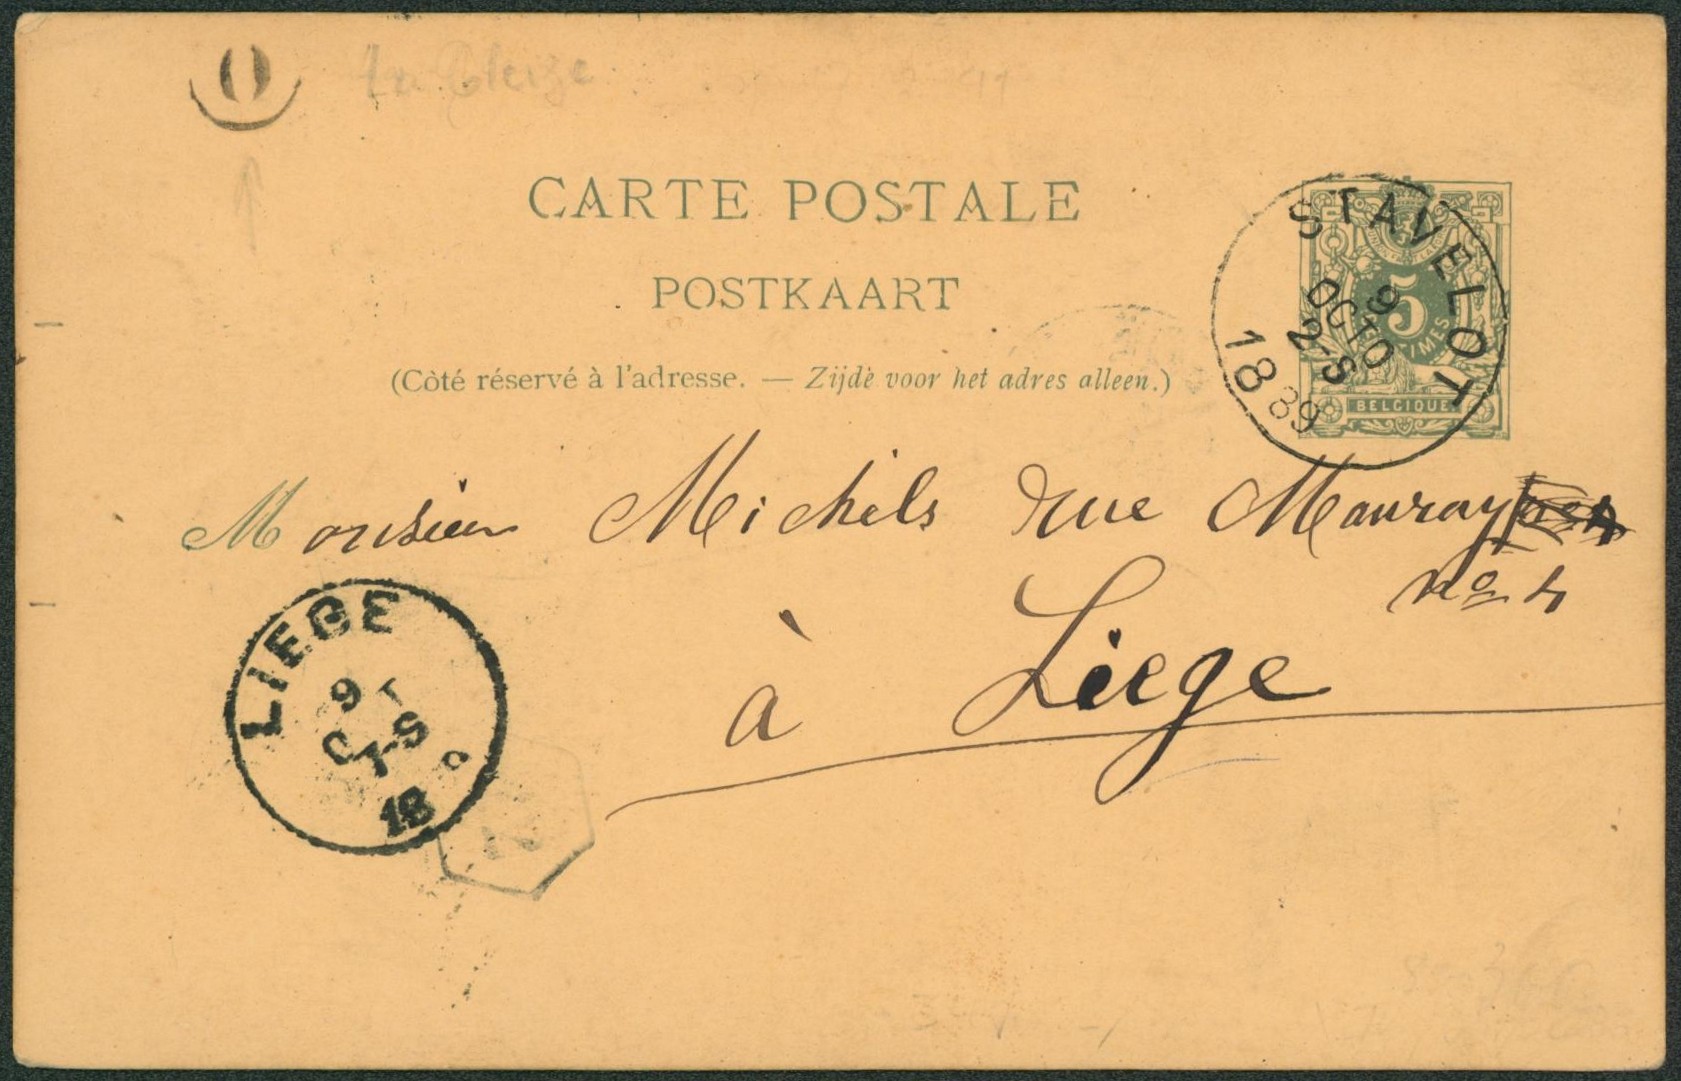 O
La Gleize
CARTE POSTALE
POSTKAART
(Côté réservé à l'adresse. — Zijde voor het adres alleen.)
STAVELOT
9
OCTO
2-S
1889
5
BELGIQUE
Monsieur Michels rue Mauray
No 4
à Liege
LIEGE
9
7-S
18